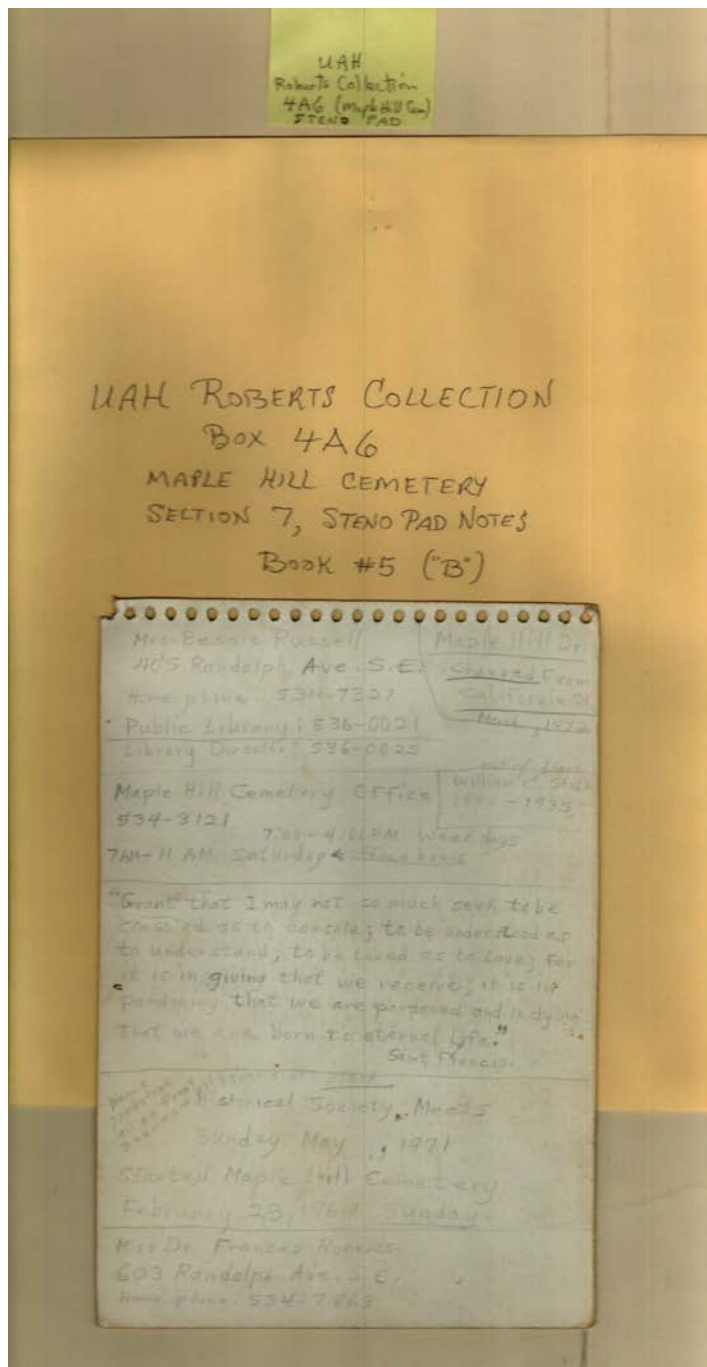 UAH
Roberts Collection
4A6 (Maple Hill Cem)
STENO PAD
UAH ROBERTS COLLECTION
BOX 4A6
MAPLE HILL CEMETERY
SECTION 7, STENO PAD NOTES
BOOK #5 ("B")
Mrs. Bessie Russell
405 Randolph Ave. S.E.
Home phone: 534-7327
Public Library: 536-0021
Library Director: 536-0025
Maple Hill Dr.
Changed From
California St.
1972
William C.
Maple Hill Cemetery Office
534-3121
7:00-4:00 PM Week days
7AM-11 AM Saturday
"Grant that I may not so much seek to be
consoled as to console; to be understood as
to understand; to be loved as to love; for
it is in giving that we receive; it is in
pardoning that we are pardoned and in dying
that we are born to eternal life."
Saint Francis
Historical Society Meets
Sunday May , 1971
Started Maple Hill Cemetery
February 23, Sunday
Miss Dr. Frances Roberts
603 Randolph Ave. S.E.
Home phone: 534-7863